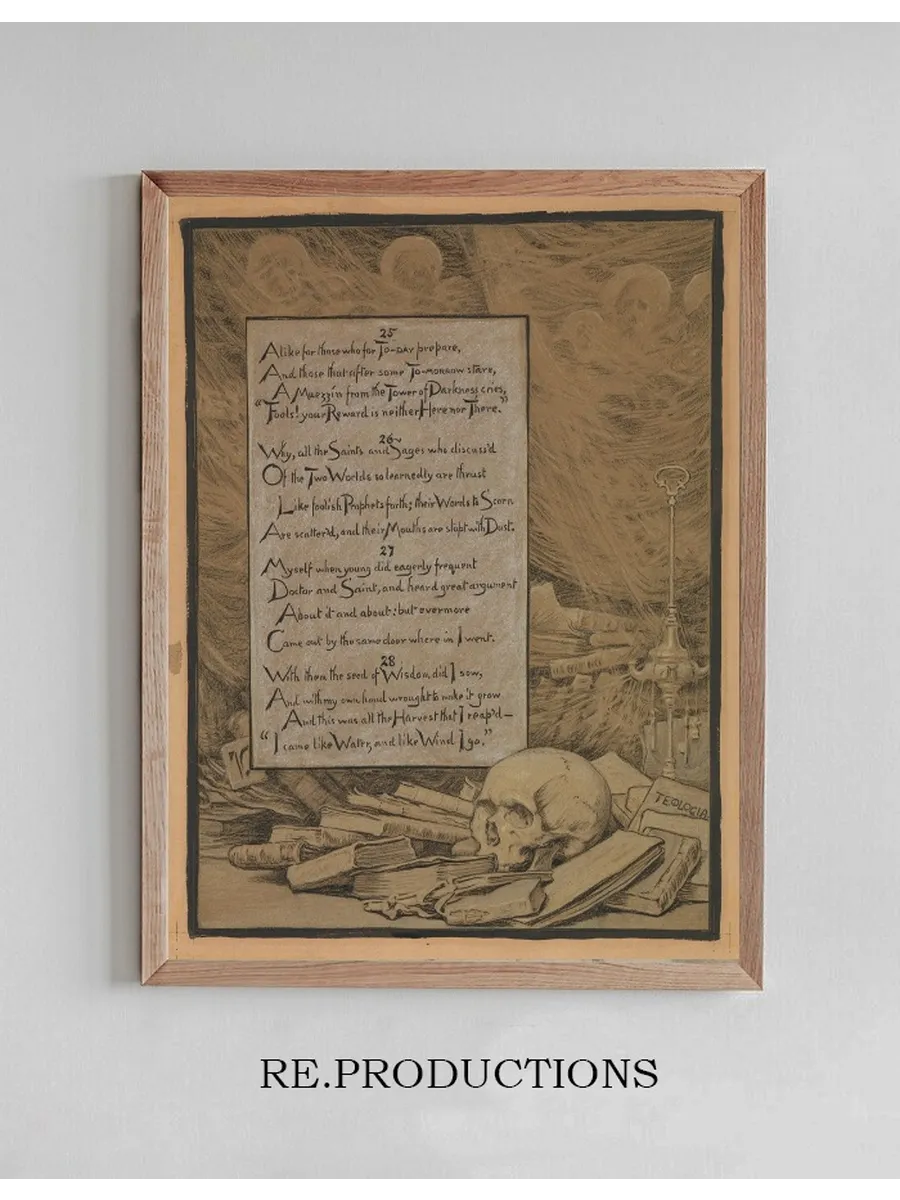 25
Alike for those who for To-day prepare,
And those that after some To-morrow stare,
A Muezzín from the Tower of Darkness cries,
"Fools! your Reward is neither Here nor There."
26
Why, all the Saints and Sages who discuss'd
Of the Two Worlds so learnedly are thrust
Like foolish Prophets forth; their Words to Scorn
Are scatter'd, and their Mouths are stopt with Dust.
27
Myself when young did eagerly frequent
Doctor and Saint, and heard great argument
About it and about: but evermore
Came out by the same door where in I went.
28
With them the seed of Wisdom did I sow,
And with my own hand wrought to make it grow
And this was all the Harvest that I reap'd—
"I came like Water, and like Wind I go."
TEOLOGIA
RE.PRODUCTIONS